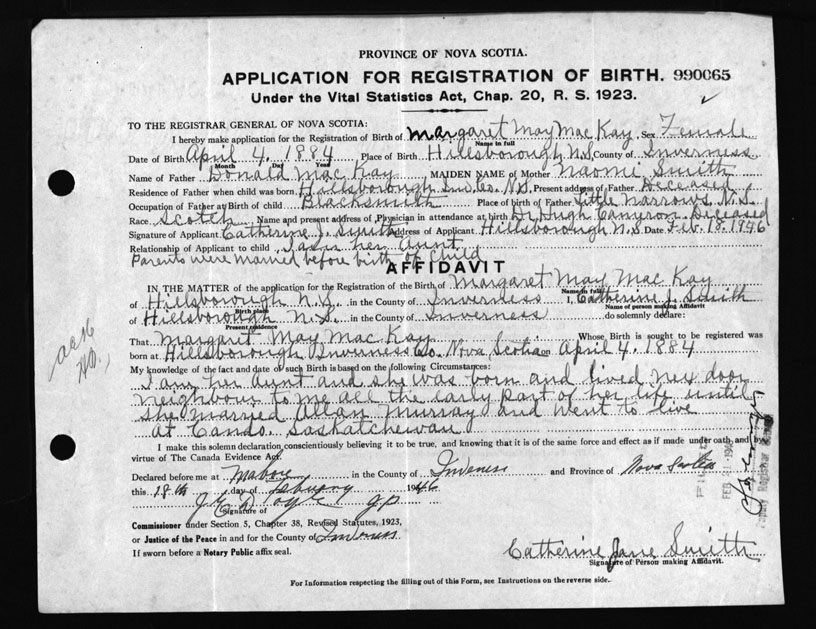 PROVINCE OF NOVA SCOTIA.
APPLICATION FOR REGISTRATION OF BIRTH. 990065
Under the Vital Statistics Act, Chap. 20, R. S. 1923.
TO THE REGISTRAR GENERAL OF NOVA SCOTIA:
I hereby make application for the Registration of Birth of Margaret May Mac Kay Sex Female
Name in full
Date of Birth April 4. 1884 Place of Birth Hillsborough N.S County of Inverness
Month Day Year
Name of Father Donald Mac Kay MAIDEN NAME of Mother Naomi Smith
Residence of Father when child was born Hillsborough Inv Co. N.S. Present address of Father Deceased
Occupation of Father at Birth of child Blacksmith Place of birth of Father Little Narrows N.S.
Race Scotch Name and present address of Physician in attendance at birth Dr Hugh Camyron Deceased
Signature of Applicant Catherine J. Smith Address of Applicant Hillsborough N.S. Date Feb. 18. 1946
Relationship of Applicant to child I am her Aunt
Parents were married before birth of Child
AFFIDAVIT
IN THE MATTER of the application for the Registration of the Birth of Margaret May Mac Kay
Name in full
of Hillsborough N.S. in the County of Inverness I, Catherine J. Smith
Birth place Name of person making Affidavit
of Hillsborough N.S. in the County of Inverness do solemnly declare:
Present residence
That Margaret May Mac Kay Whose Birth is sought to be registered was
born at Hillsborough Inverness Co. Nova Scotia on April 4. 1884
My knowledge of the fact and date of such Birth is based on the following Circumstances:
I am her aunt and she was born and lived nex door
neighbour to me all the early part of her life until
she married Allan Murray and went to live
at Cando. Saskatchewan
I make this solemn declaration conscientiously believing it to be true, and knowing that it is of the same force and effect as if made under oath and by
virtue of The Canada Evidence Act.
Declared before me at Mabou in the County of Inverness and Province of Nova Scotia
this 18th day of February 1946
J.P.
Signature of
Commissioner under Section 5, Chapter 38, Revised Statutes, 1923,
or Justice of the Peace in and for the County of Inverness
If sworn before a Notary Public affix seal.
Catherine Jane Smith
Signature of Person making Affidavit.
For Information respecting the filling out of this Form, see Instructions on the reverse side.